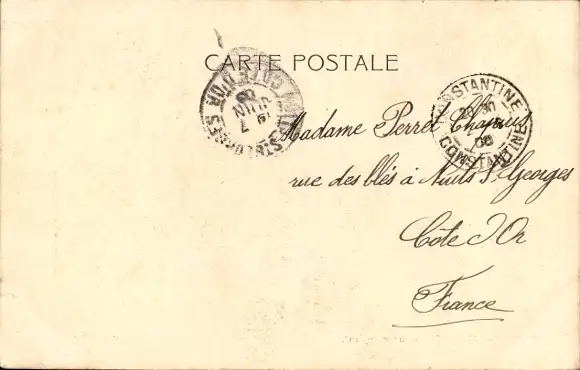 CARTE POSTALE
CONSTANTINE
CONSTANTINE
COTE D'OR
JUIN
Madame Perret Chapuis
rue des blés à Nuits St Georges
Côte d'Or
France